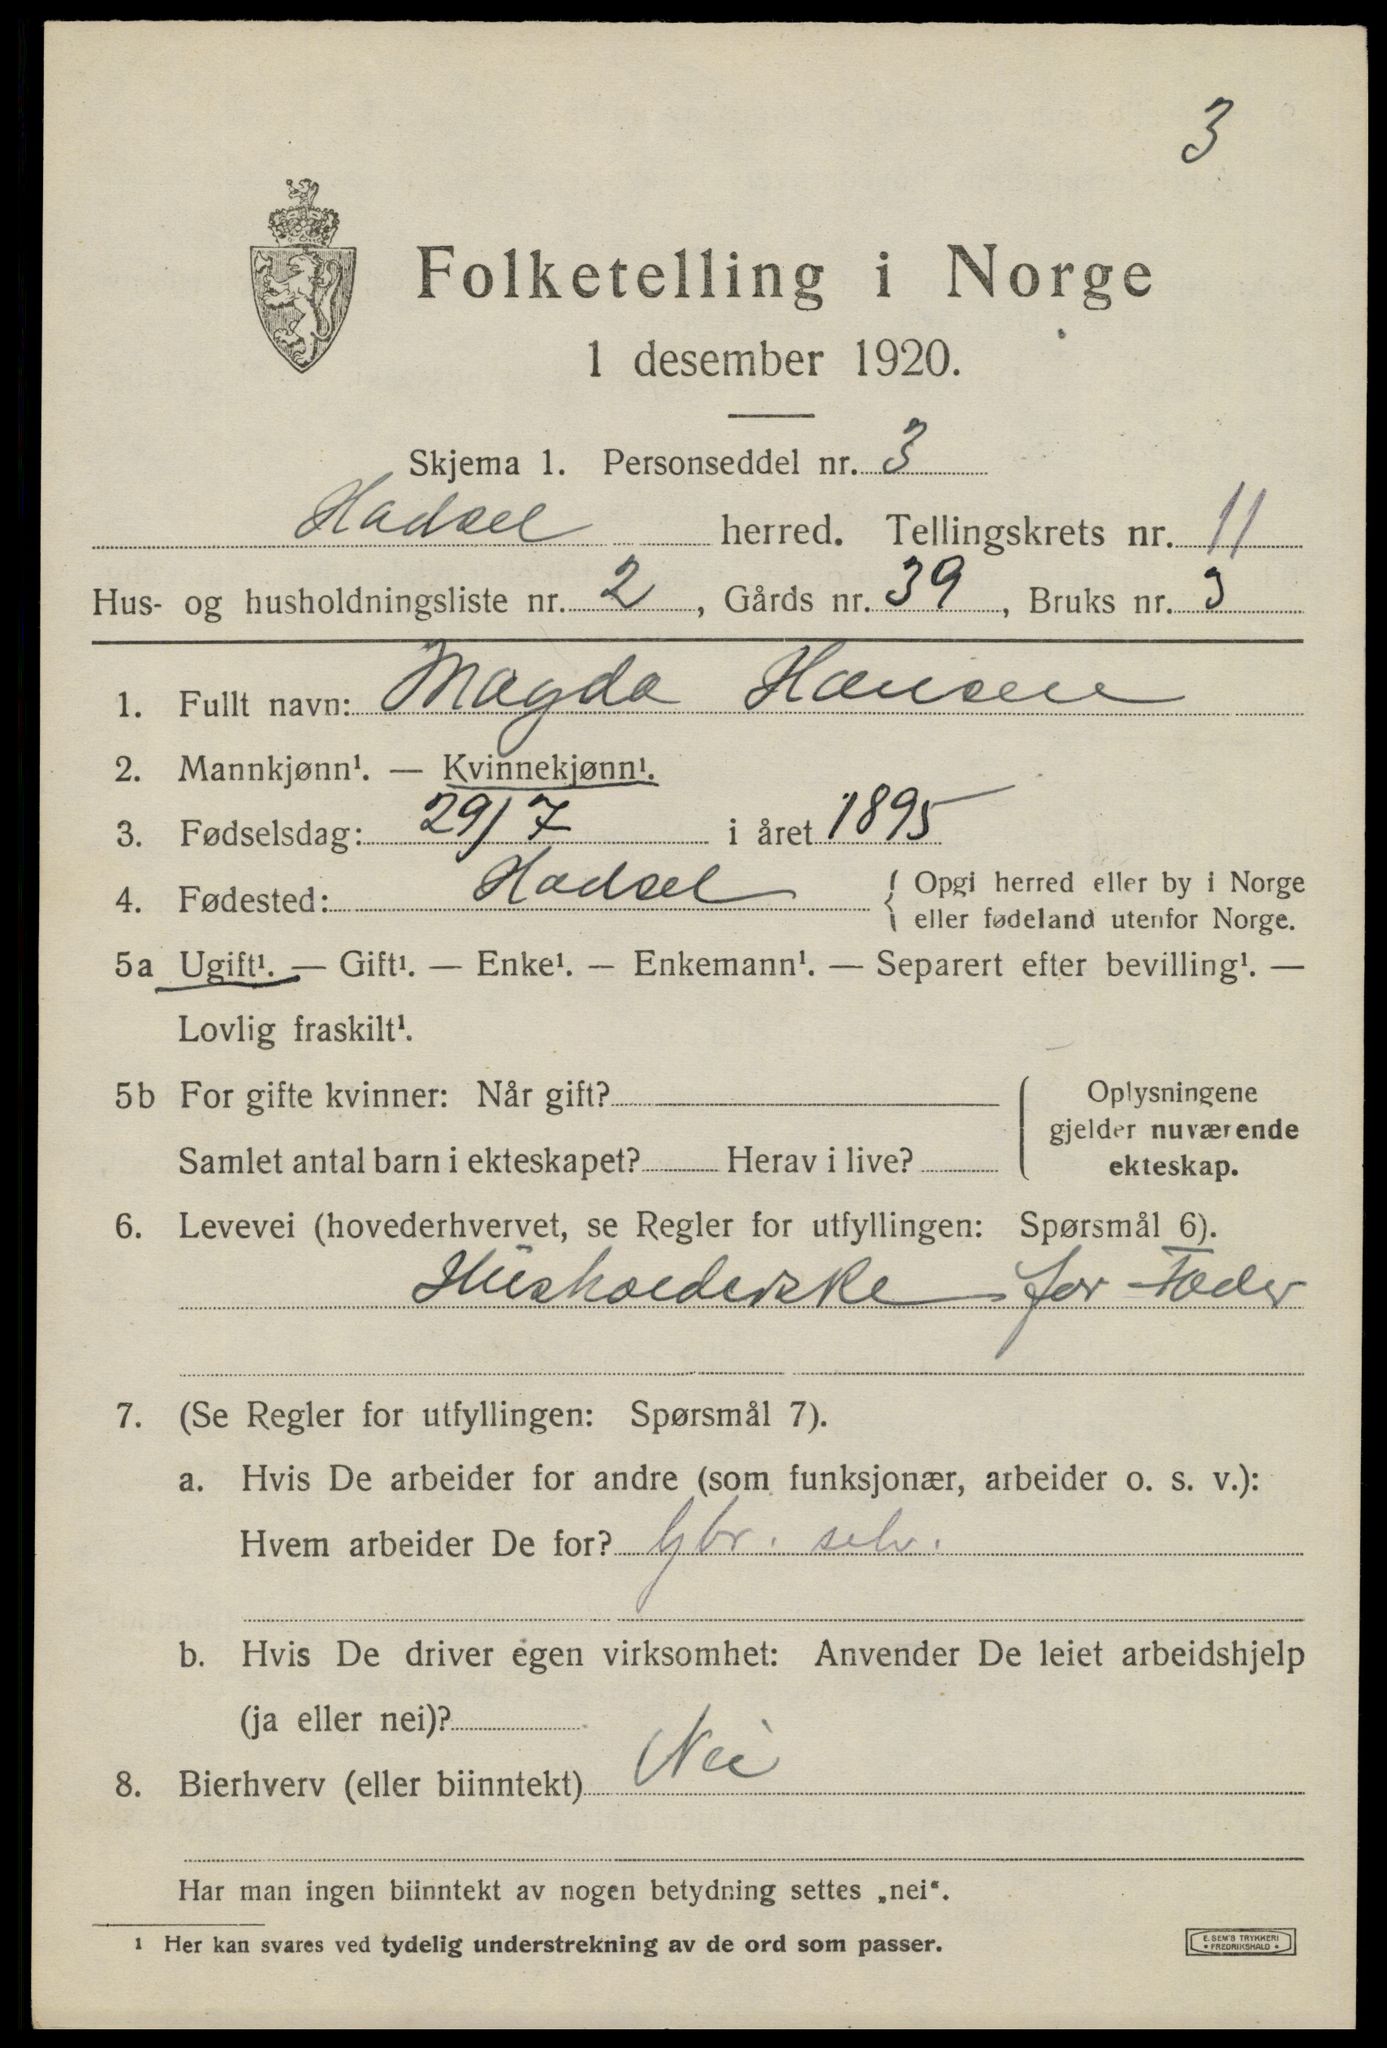 3
Folketelling i Norge
1 desember 1920.
Skjema 1. Personseddel nr. 3
Hadsel herred. Tellingskrets nr. 11
Hus- og husholdningsliste nr. 2, Gårds nr. 39, Bruks nr. 3
1. Fullt navn: Magda Hansen
2. Mannkjønn¹. — Kvinnekjønn¹.
3. Fødselsdag: 29/7 i året 1895
4. Fødested: Hadsel { Opgi herred eller by i Norge
eller fødeland utenfor Norge.
5a Ugift¹. — Gift¹. — Enke¹. — Enkemann¹. — Separert efter bevilling¹. —
Lovlig fraskilt¹.
5b For gifte kvinner: Når gift?
Samlet antal barn i ekteskapet? Herav i live?
Oplysningene
gjelder nuværende
ekteskap.
6. Levevei (hovederhvervet, se Regler for utfyllingen: Spørsmål 6).
Husholderske for Fader
7. (Se Regler for utfyllingen: Spørsmål 7).
a. Hvis De arbeider for andre (som funksjonær, arbeider o. s. v.):
Hvem arbeider De for? Gbr. selv.
b. Hvis De driver egen virksomhet: Anvender De leiet arbeidshjelp
(ja eller nei)?
8. Bierhverv (eller biinntekt) Nei
Har man ingen biinntekt av nogen betydning settes „nei“.
¹ Her kan svares ved tydelig understrekning av de ord som passer.
E. SEM'S TRYKKERI
• FREDRIKSHALD •